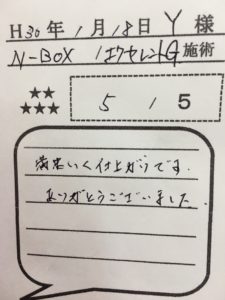 H30年1月18日 Y 様
N-BOX /エクセレントG 施術
★★
★★★
5 / 5
満足いく仕上がりです.
ありがとうございました.